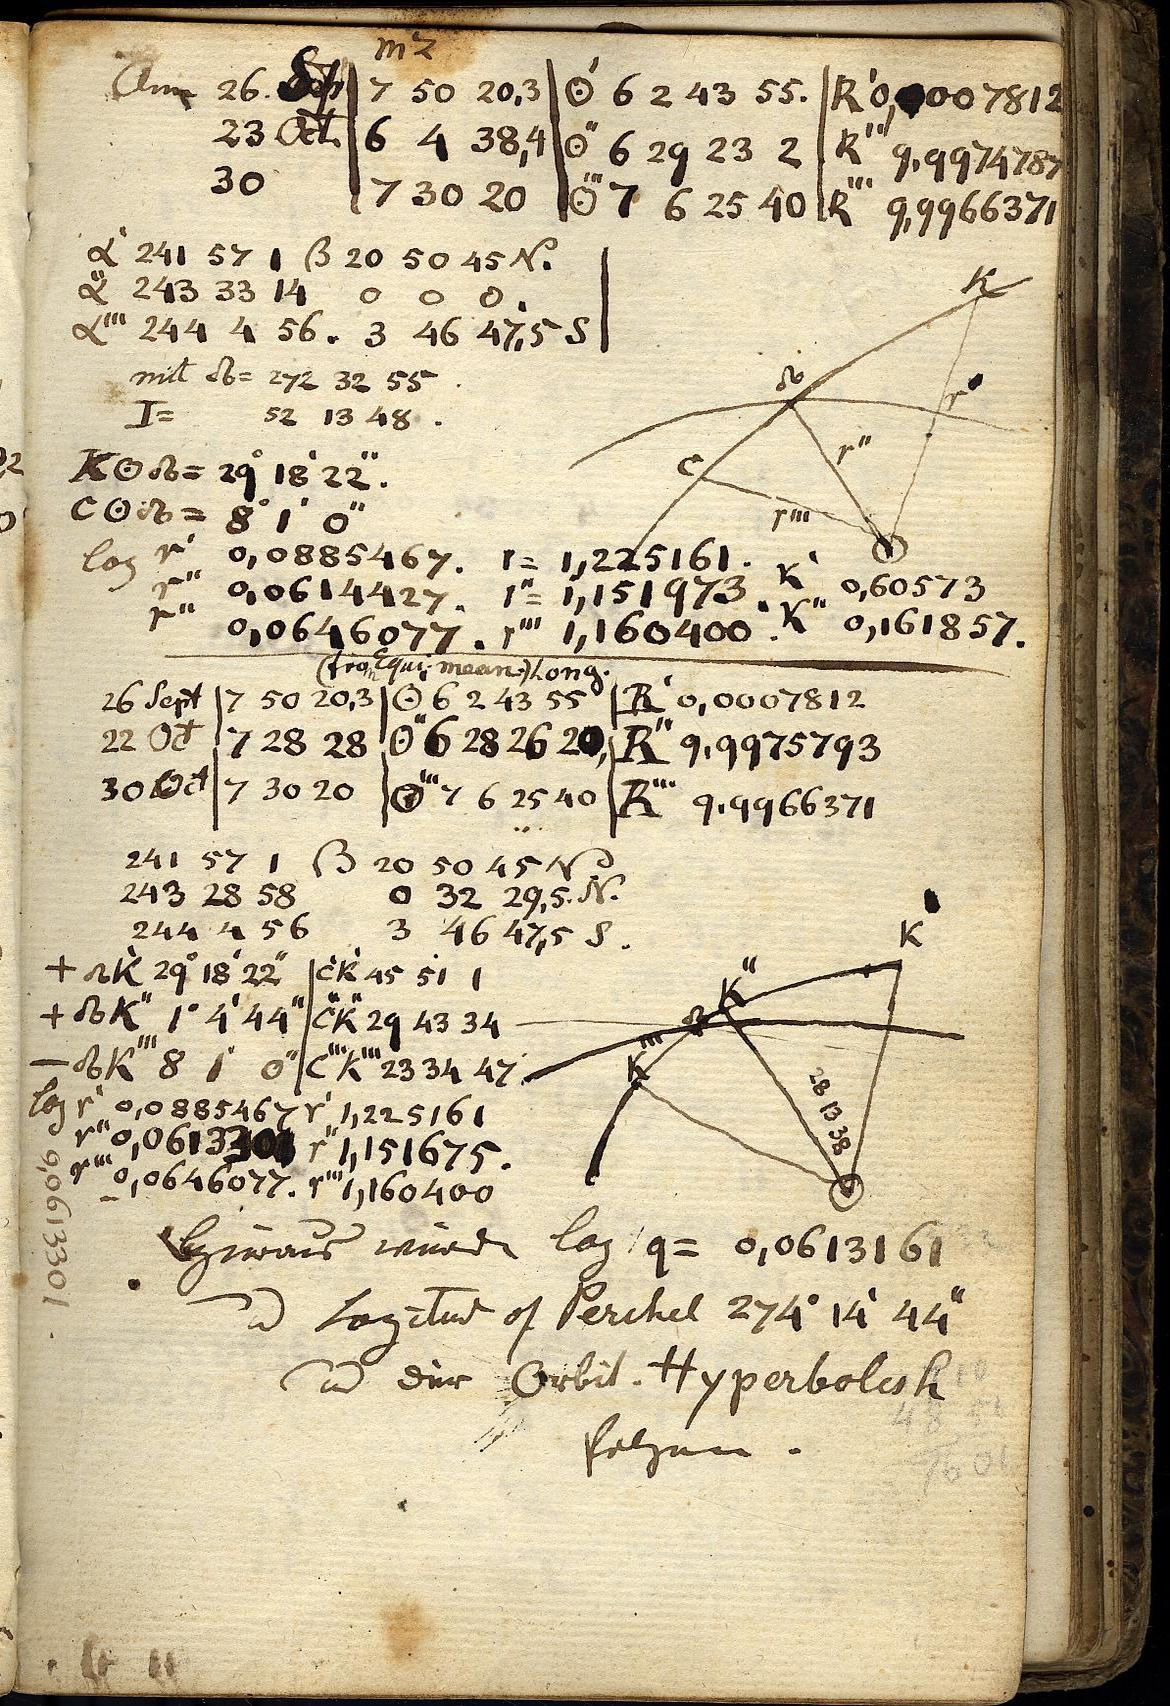 m z
26. Sept | 7 50 20,3 | ☉' 6 2 43 55. | R' 0,0007812
23 Oct. | 6 4 38,4 | ☉'' 6 29 23 2 | R'' 9,9974787
30 | 7 30 20 | ☉''' 7 6 25 40 | R''' 9,9966371
α' 241 57 1 β 20 50 45 N.
α'' 243 33 14 0 0 0.
α''' 244 4 56. 3 46 47,5 S
mit ☊= 272 32 55.
I= 52 13 48.
K
☊
r'
r''
C
r'''
K☉☊= 29° 18' 22''.
C☉☊= 8° 1' 0''
log r' 0,0885467. r= 1,225161. K' 0,60573
r'' 0,0614427. r''= 1,151973. K'' 0,161857.
r''' 0,0646077. r''' 1,160400.
(from Equi. mean.) Long.
26 Sept | 7 50 20,3 | ☉ 6 2 43 55 | R' 0,0007812
22 Oct | 7 28 28 | ☉'' 6 28 26 20, | R'' 9,9975793
30 Oct | 7 30 20 | ☉''' 7 6 25 40 | R''' 9,9966371
241 57 1 β 20 50 45 N
243 28 58 0 32 29,5. N.
244 4 56 3 46 47,5 S.
+ ☊K' 29° 18' 22'' | C'K' 45 51 1
+ ☊K'' 1° 4' 44'' | C''K'' 29 43 34
— ☊K''' 8 1' 0'' | C'''K''' 23 34 47.
K'
K''
☊
K'''
28 13 38
log r' 0,0885467 r' 1,225161
r'' 0,0613301 r'' 1,151675.
r''' 0,0646077. r''' 1,160400
9,0613301
wurde log q= 0,0613161
of Perihel 274° 14' 44''
Orbit. Hyperbolish